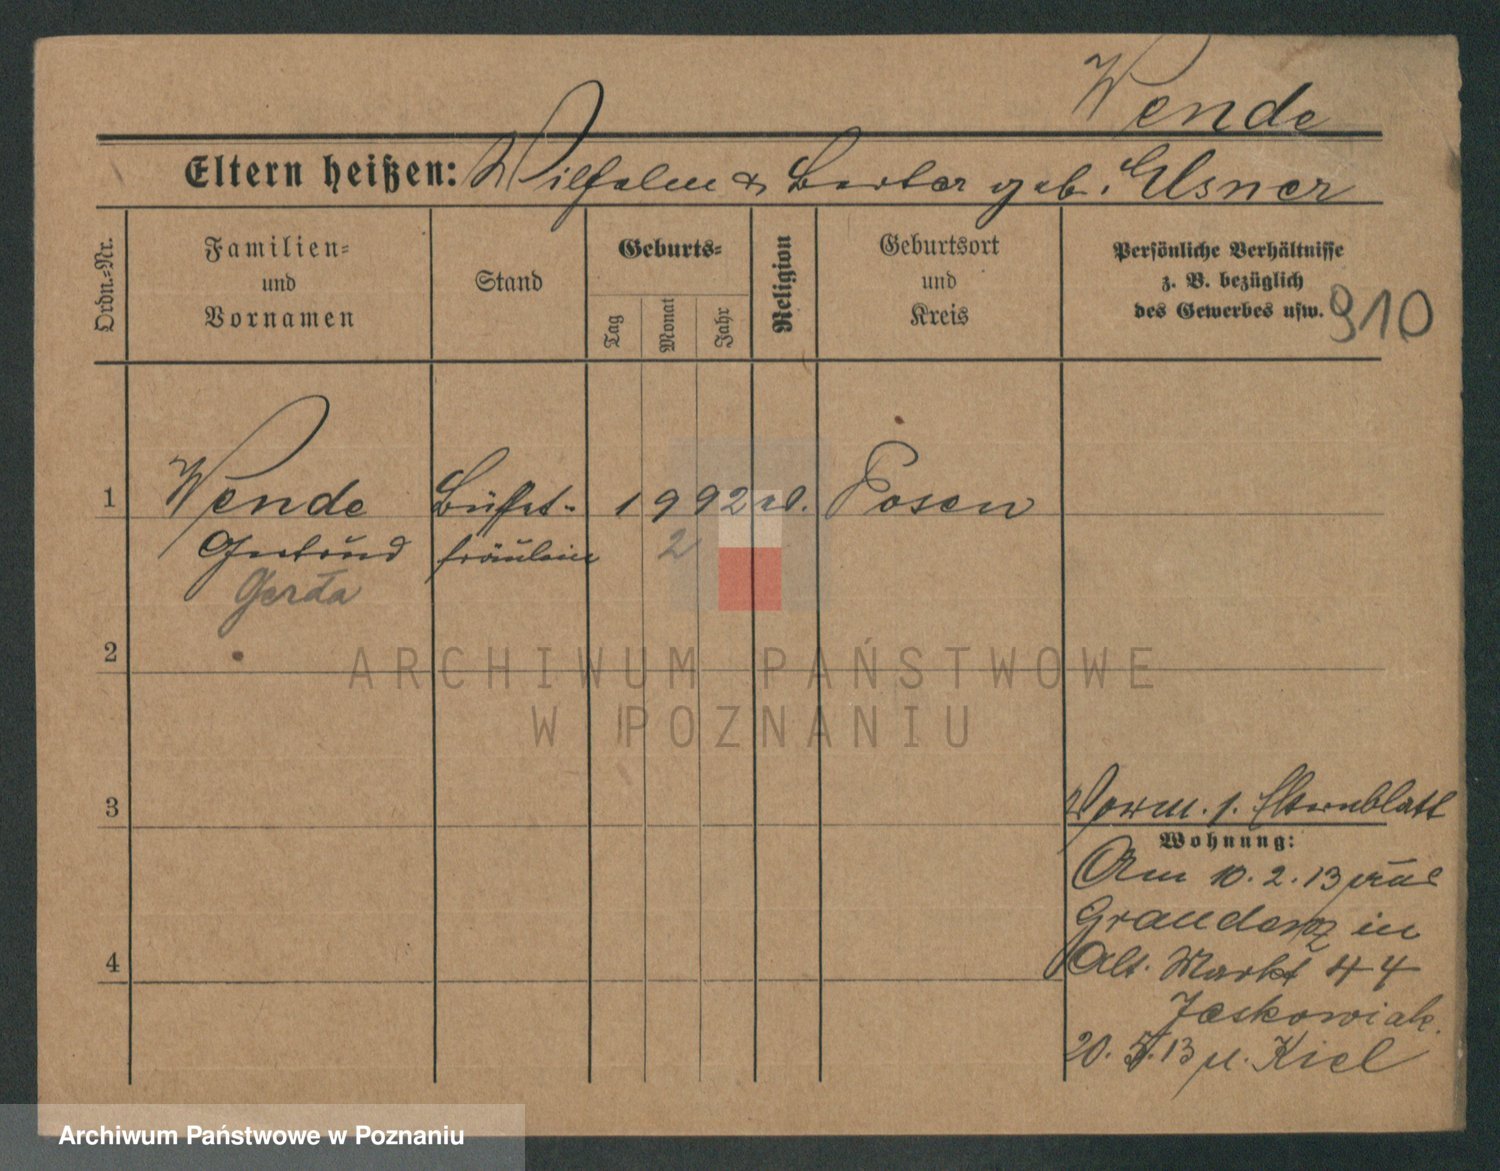 Wende
Eltern heißen: Wilhelm & geb. Elsner
Ordn.-Nr.
Familien-
und
Vornamen
Stand
Geburts-
Tag
Monat
Jahr
Religion
Geburtsort
und
Kreis
Persönliche Verhältnisse
z. B. bezüglich
des Gewerbes usw.
910
1 Wende Büffet- 1 9 92 Posen
Gertrud fräulein 2
Gerda
2
ARCHIWUM PAŃSTWOWE
W POZNANIU
3
Verm. s. Elternblatt
Wohnung:
Am 10. 2. 13
Graudenz in
4
Alt. Markt 44
Jaskowiak.
20. 5. 13 n. Kiel
Archiwum Państwowe w Poznaniu